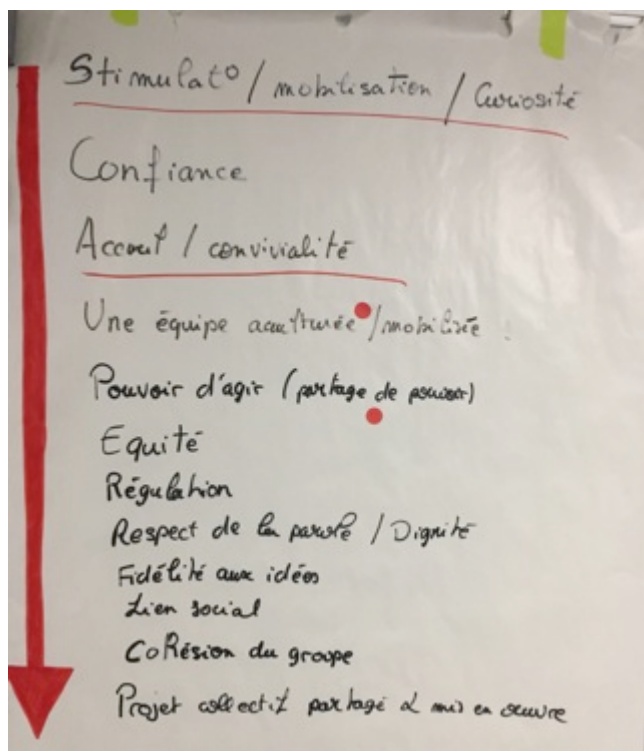 Stimulat° / mobilisation / Curiosité
Confiance
Accueil / convivialité
Une équipe acculturée / mobilisée
Pouvoir d'agir (partage de pouvoir)
Equité
Régulation
Respect de la parole / Dignité
Fidélité aux idées
Lien social
Cohésion du groupe
Projet collectif partagé & mis en œuvre